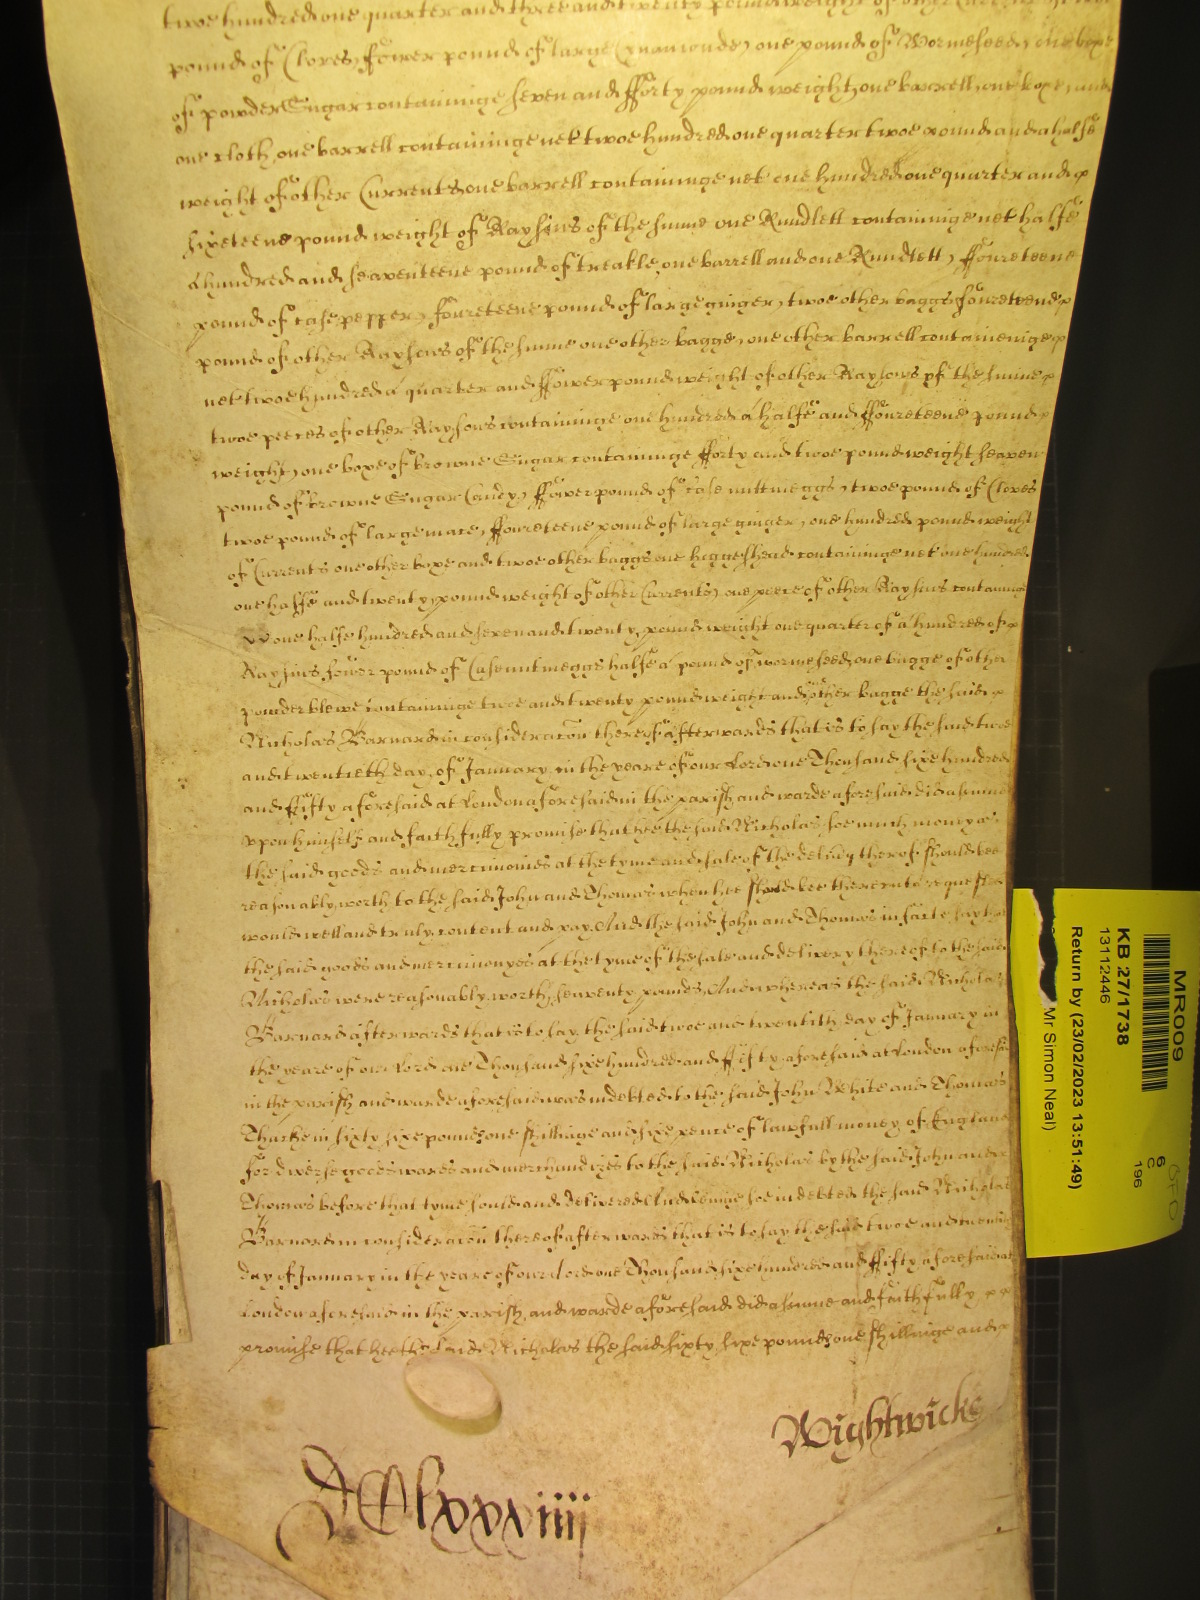 twoe hundred one quarter and three and twenty pound weight of other
pound of Cloves, ffower pound of large Cynamonde, one pound of Wormeseed, one boxe
of powder Sugar contaninge seven and fforty pound weight, one barrell, one boxe
one cloth, one barrell contaninge nett twoe hundred one quarter twoe pound and a halfe
weight of other Currents, one barrell containinge net one hundred one quarter and
sixeteene pound weight of Raysins of the sunne one Rundlett containinge net halfe
a hundred and seaventeene pound of treakle, one barrell and one Rundlett, ffoureteene
pound of case pepper, foureteene pound of large ginger, twoe other baggs foureteene
pound of other Raysons of the sunne one other bagge, one other barrell contamenige
net twoe hundred a quarter and ffower pound weight of other Raysons pf the sunne
twoe peeces of other Raysons containinge one hundred a halfe and ffoureteene pound
weight, one boxe of browne Sugar containinge fforty and twoe pound weight seaven
pound of browne Sugar Candy, ffower pound of case nuttmeggs, twoe pound of Cloves
twoe pound of large mace, ffoureteene pound of large ginger, one hundred pound weight
of Currents one other boxe and twoe other baggs one hoggshead containinge net one hundred
one halfe and twenty pound weight of other Currents, one peece of other Raysins containinge
one halfe hundred and seven and twenty pound weight one quarter of a hundred of
Raysins fower pound of Case nutmeggs halfe a pound of wormeseed, one bagge of other
powder blewe containinge twoe and twenty pound weight and other bagge the said
Nicholas Barnard in consideracon thereof afterwards that is to say the said twoe
and twentieth day of January in the yeare of our Lord one Thousand sixe hundred
and ffifty aforesaid at London aforesaid in the parish and warde aforesaid did assume
vpon himself and faithfully promise that hee the said Nicholas soe much money as
the said goods and mercimonies at the tyme and sale of the delivery therof should bee
reasonably worth to the said John and Thomas when hee should bee thereunto requested
would well and truly content and pay And the said John and Thomas in facte say that
the said goods and mercimonyes at the tyme of the sale and delivery thereof to the said
Nicholas were reasonably worth seaventy pounds, And whereas the said Nicholas
Barnard afterwards that is to say the said twoe and twentith day of January in
the yeare of our Lord one Thousand sixe hundred and ffifty aforesaid at London aforesaid
in the parish and warde aforesaid was indebted to the said John White and Thomas
in sixty sixe pounds one shillinge and sixe pence of lawfull money of England
for diverse goods wares and merchandizes to the said Nicholas by the said John and
Thomas before that tyme sould and delivered And beinge soe indebted the said Nicholas
Barnard in consideracon thereof afterwards that is to say the said twoe and twentith
day of January in the yeare of our Lord one Thousand sixe hundred and ffifty aforesaid at
London aforesaid in the parish and warde aforesaid did assume and faithfully
promise that hee the said Nicholas the said sixty sixe pounds one shillinge and
Wightwicke
lxxxiiij
MR009
KB 27/1738
13112446
Return by (23/02/2023 13:51:49)
Mr Simon Neal)
6
C
196